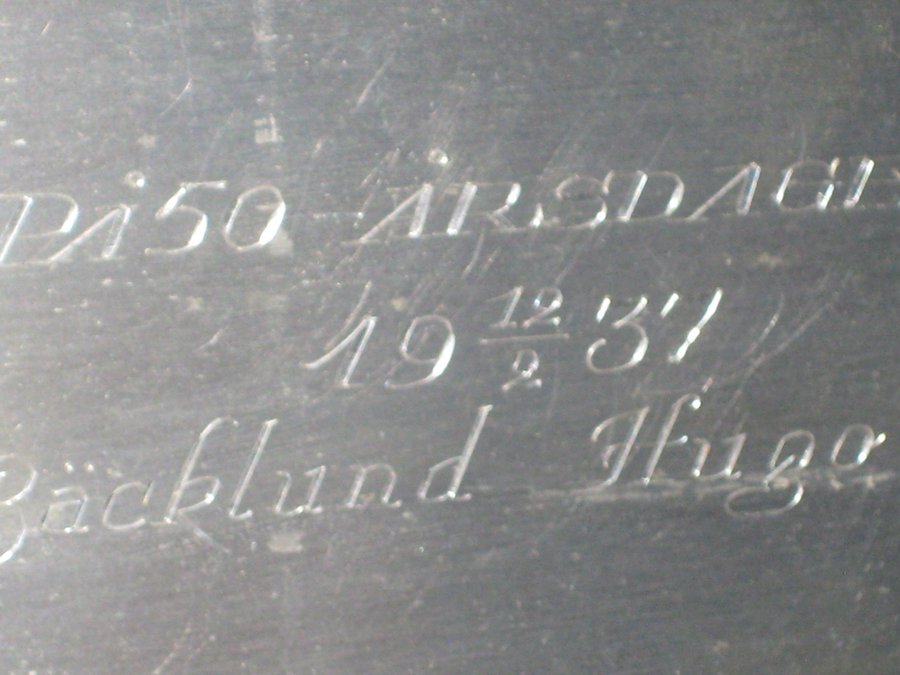 PÅ 50 ÅRSDAGE
19 12/2 37
Bäcklund Hugo